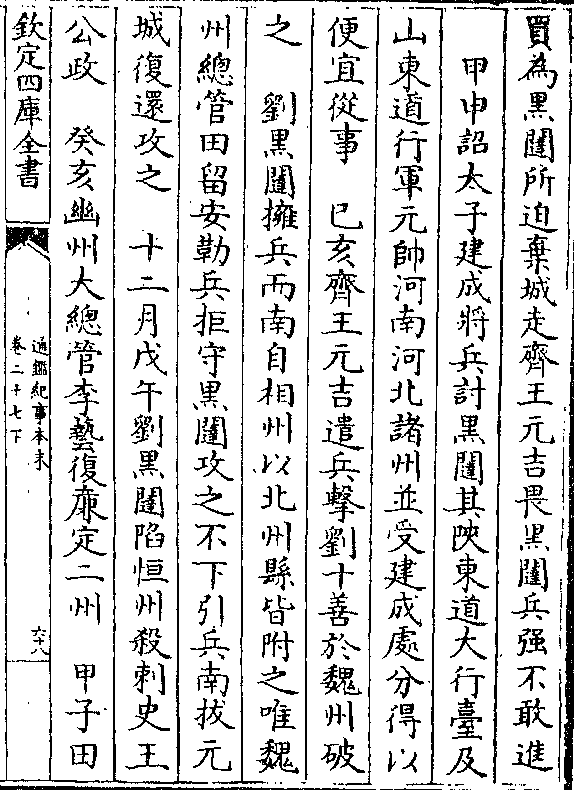 買為黑闥所迫棄城走齊王元吉畏黑闥兵强不敢進
甲申詔太子建成將兵討黑闥其陜東道大行臺及
山東道行軍元帥河南河北諸州並受建成處分得以
便宜從事　已亥齊王元吉遣兵擊劉十善於魏州破
之　劉黑闥擁兵而南自相州以北州縣皆附之唯魏
州總管田留安勒兵拒守黑闥攻之不下引兵南拔元
城復還攻之　十二月戊午劉黑闥陷恒州殺刺史王
公政　癸亥幽州大總管李藝復廉定二州　甲子田
欽定四庫全書
通鑑紀事本末
卷二十七下
六十八